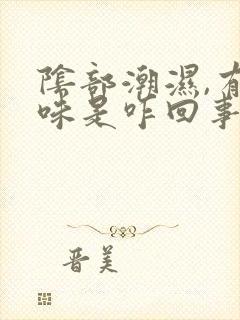 陰部潮濕,有
味是咋回事
晋美